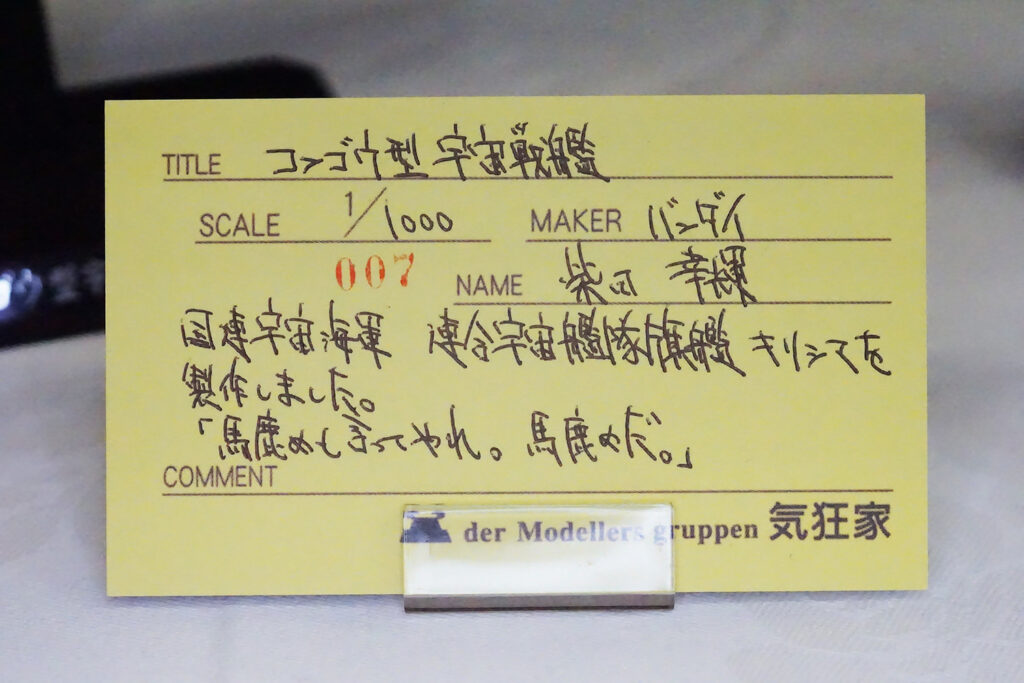 TITLE コンゴウ型 宇宙戦艦
SCALE 1/1000 MAKER バンダイ
007 NAME 柴田 幸輝
国連宇宙海軍 連合宇宙艦隊旗艦 キリシマを
製作しました。
「馬鹿めと言ってやれ。馬鹿めだ。」
COMMENT
der Modellers gruppen 気狂家